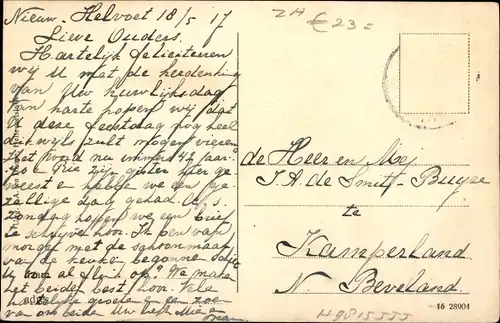 Nieuw-Helvoet 18/5 '17
Lieve Ouders.
Hartelijk feliciteeren
wij U met de herdenking
van Uw huwelijksdag
van harte hopen wij dat
U deze feestdag nog heel
dikwijls zult mogen vieren
Het word nu immers 42 jaar.
zijn gisteren hier ge
weest en hebbe we een ge
zellige dag gehad. A.s.
zondag hopen we een brief
te schrijven hoor. Ik ben van
morgen met de schoonmaak
van de keuken begonne
U al op? We make
het beide best hoor. Vele
hartelijke groeten en een zoe
van ons beide Uw liefh
ZH € 23=
de Heer en Mej
J. A. de Smit-Buyze
te
Kamperland
N. Beveland
16 28904
H9815555